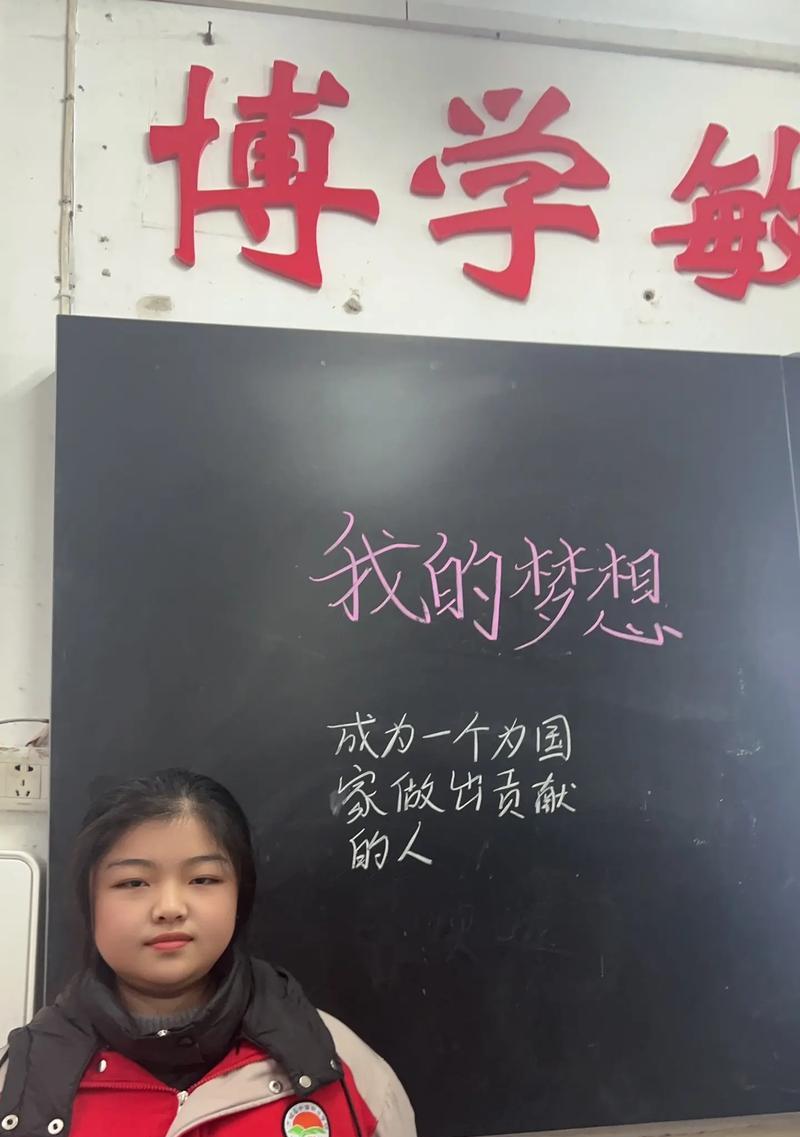 博学敏
我的梦想
成为一个为国
家做出贡献
的人